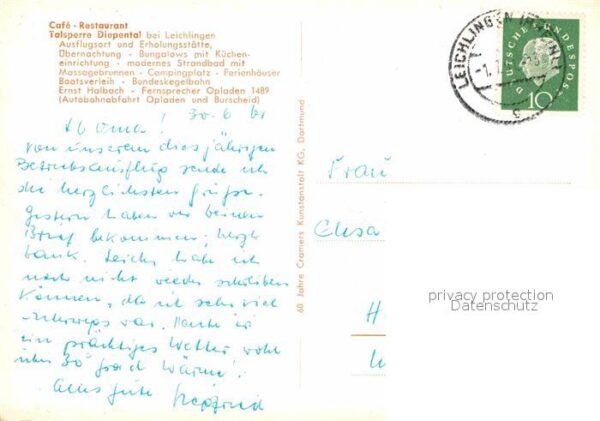 Café - Restaurant
Talsperre Diepental bei Leichlingen
Ausflugsort und Erholungsstätte,
Übernachtung - Bungalows mit Küchen-
einrichtung - modernes Strandbad mit
Massagebrunnen - Campingplatz - Ferienhäuser
Bootsverleih - Bundeskegelbahn
Ernst Halbach - Fernsprecher Opladen 1489
(Autobahnabfahrt Opladen und Burscheid)
30.6.61
Oma!
von unserem diesjährigen
Betriebsausflug sende ich
die herzlichsten Grüße.
Gestern haben wir deinen
Brief bekommen, herzl.
Dank. Leider habe ich
noch nicht wieder schreiben
können, da ich sehr viel
unterwegs war. Heute ist
ein prächtiges Wetter, wohl
über 30 Grad Wärme!
Alles Gute Siegfried
60 Jahre Cramers Kunstanstalt KG, Dortmund
Frau
H
LEICHLINGEN
DEUTSCHE BUNDESPOST
10
privacy protection
Datenschutz